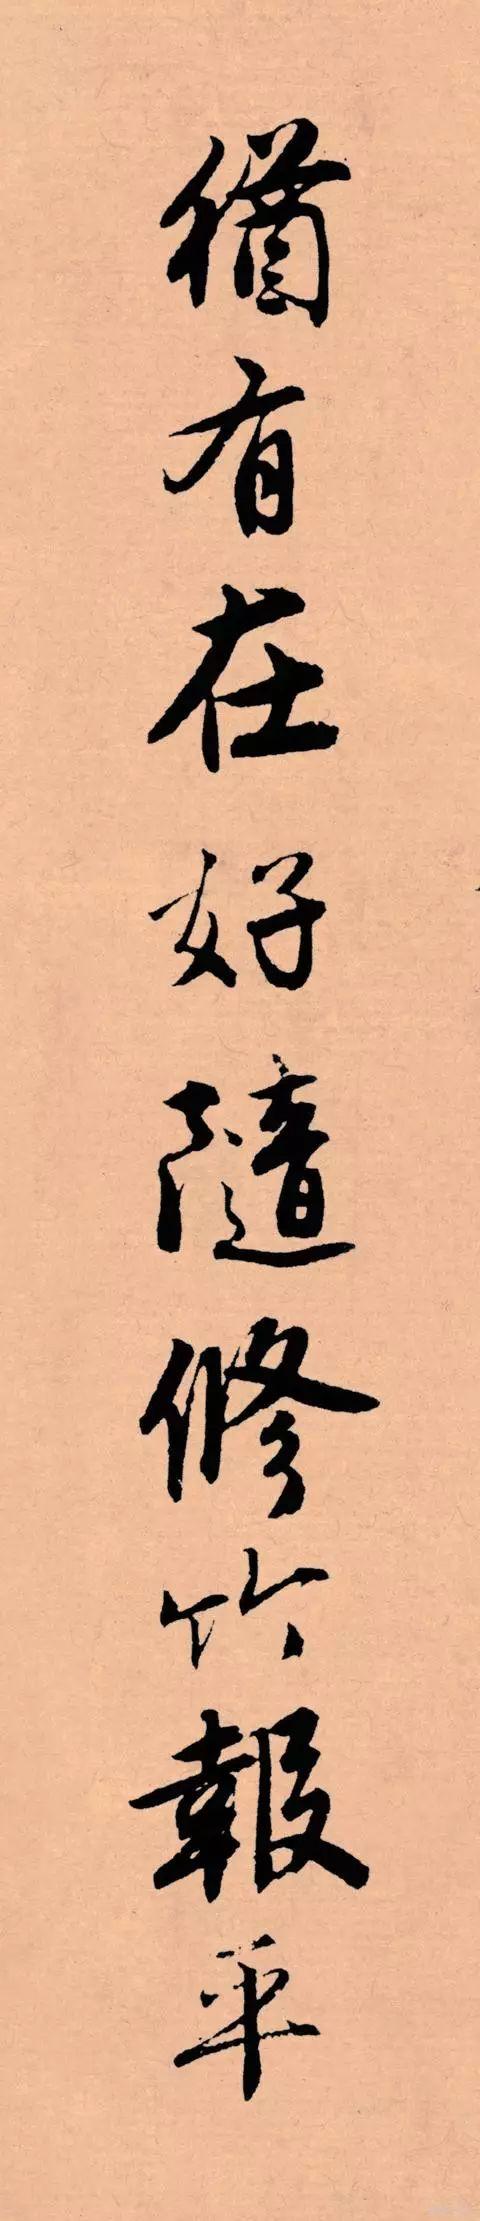 猶有在好隨修竹報平